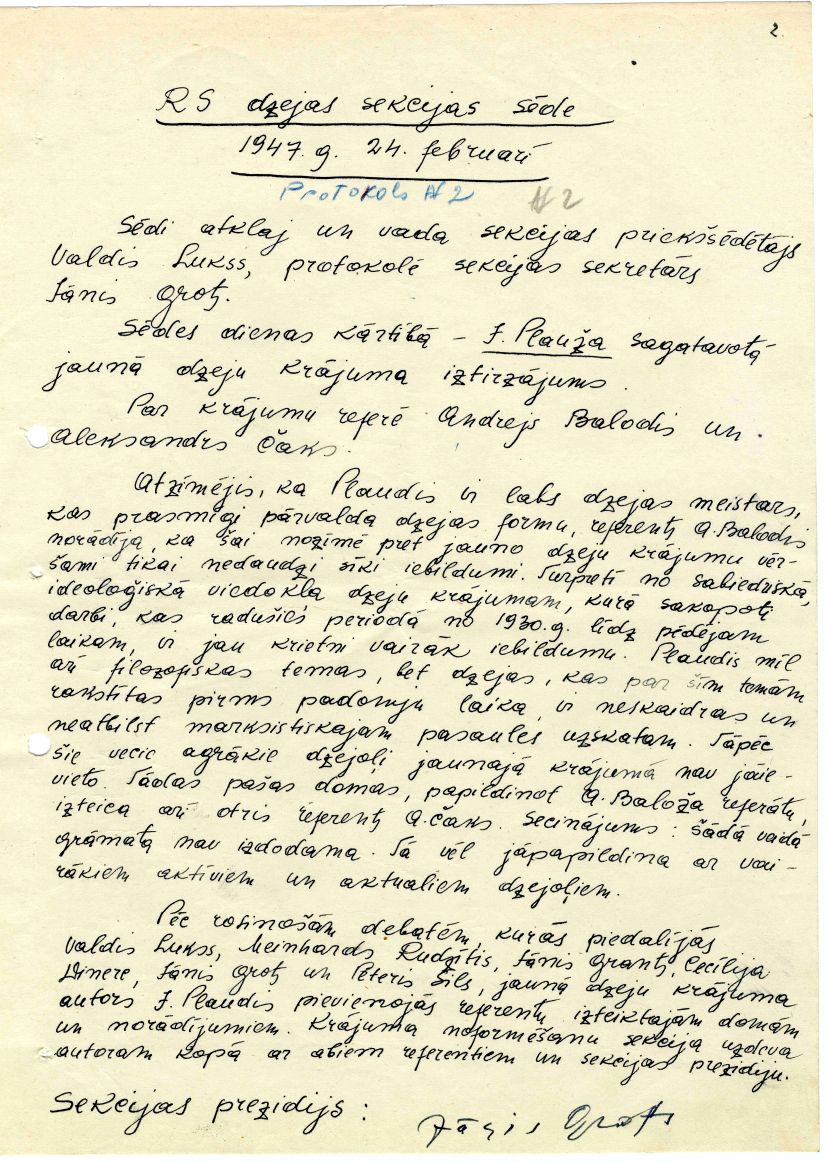 2
RS dzejas sekcijas sēde
1947. g. 24. februarī
Protokols N2 N2
Sēdi atklaj un vada sekcijas priekšsēdētājs
Valdis Lukss, protokolē sekcijas sekretārs
Jānis Grots.
Sēdes dienas kārtībā – J. Plauža sagatavotā
jaunā dzeju krājuma iztirzājums.
Par krājumu referē Andrejs Balodis un
Aleksandrs Čaks.
Atzīmējis, ka Plaudis ir labs dzejas meistars,
kas prasmīgi pārvalda dzejas formu, referents A. Balodis
norādīja, ka šai nozīmē pret jauno dzeju krājumu vēr-
šami tikai nedaudzi sīki iebildumi. Turpretī no sabiedriskā,
ideoloģiskā viedokļa dzeju krājumam, kurā sakopoti
darbi, kas radušies periodā no 1930. g. līdz pēdējam
laikam, ir jau krietni vairāk iebildumu. Plaudis mīl
arī filozofiskas temas, bet dzejas, kas par šīm temām
rakstītas pirms padomju laika, ir neskaidras un
neatbilst marksistiskajam pasaules uzskatam. Tāpēc
šie vecie agrākie dzejoļi jaunajā krājumā nav jāie-
vieto. Tādas pašas domas, papildinot A. Baloža referātu,
izteica arī otris referents A. Čaks. Secinājums: šādā veidā
grāmata nav izdodama. Tā vēl jāpapildina ar vai-
rākiem aktīviem un aktualiem dzejoļiem.
Pēc rosinošām debatēm, kurās piedalījās
Valdis Lukss, Meinhards Rudzītis, Jānis Grants, Cecīlija
Dinere, Jānis Grots un Pēteris Sils, jaunā dzeju krājuma
autors J. Plaudis pievienojās referentu izteiktajām domām
un norādījumiem. Krājuma noformēšanu sekcija uzdeva
autoram kopā ar abiem referentiem un sekcijas prezidiju.
Sekcijas prezidijs: Jānis Grots